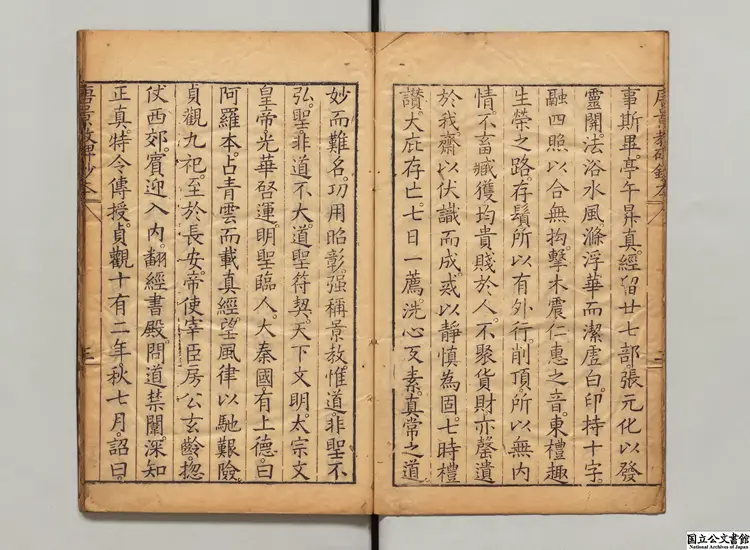 唐景教碑鈔本
事斯畢。亭午昇真。經留廿七部。張元化以發
靈關。法浴水風。滌浮華而潔虛白。印持十字。
融四照以合無拘。擊木震仁惠之音。東禮趣
生榮之路。存鬚所以有外行。削頂所以無内
情。不畜臧獲均貴賤於人。不聚貨財亦罄遺
於我。齋以伏識而成。惑以靜慎為固。七時禮
讚。大庇存亡。七日一薦。洗心反素。真常之道。
妙而難名。功用昭彰。强稱景教。惟道。非聖不
弘。聖非道不大。道聖符契。天下文明。太宗文
皇帝光華啓運。明聖臨人。大秦國。有上德。曰
阿羅本。占青雲而載真經。望風律以馳艱險。
貞觀九祀。至於長安。帝使宰臣房公玄齡。揔
仗西郊。賓迎入内。翻經書殿。問道禁闈。深知
正真。特令傳授。貞觀十有二年。秋七月。詔曰。
唐景教碑鈔本
三
国立公文書館
National Archives of Japan